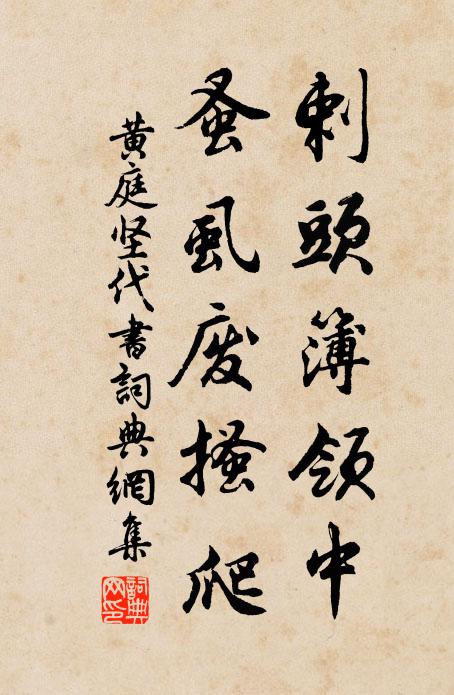 刺頭簿領中
蚤虱废搔爬
黄庭坚代書詞典網集
詞典网印